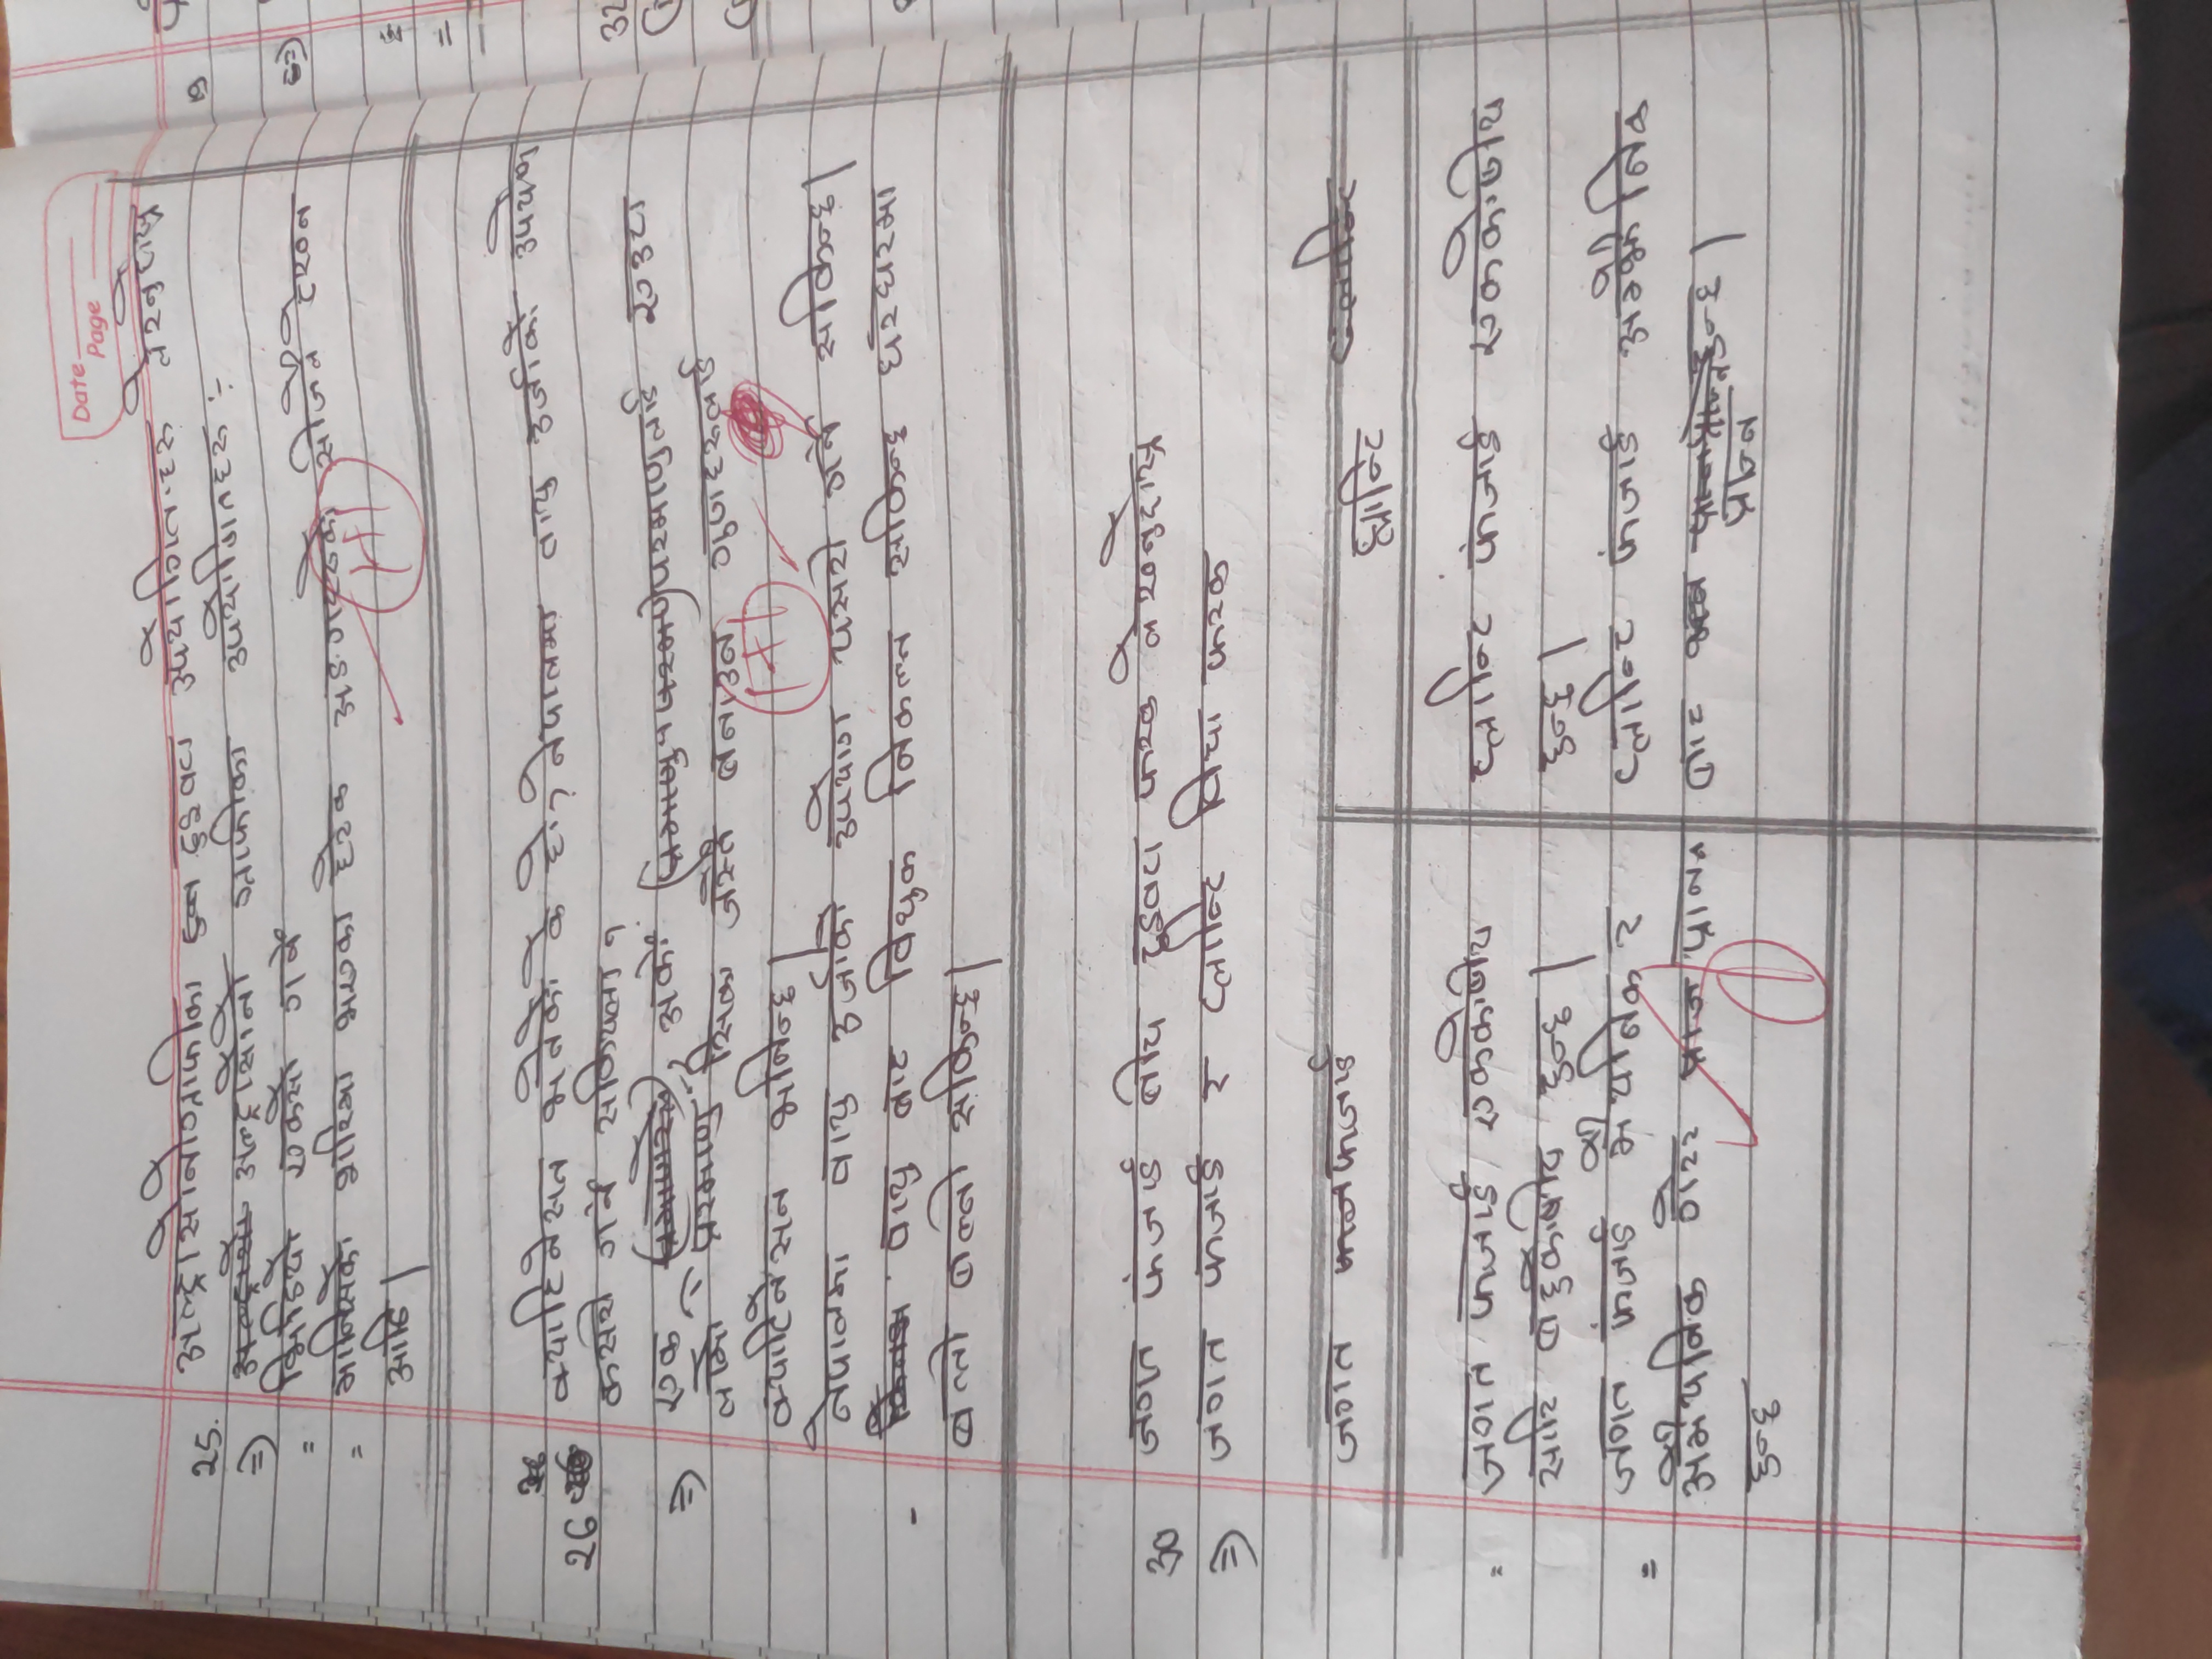 Date
Page
25. अल्ट्रासोनोग्राफीका दुइवटा उपयोगितहरु लेख्नुहोस्
=> अल्ट्रासोनो ग्राफीका उपयोगितहरु :-
= भिडियो एक्सो गर्ने
= मानिसको शरिमा भएका हरेक अङगहरुको सजिलै देख्न
आदि।
1+1
26 क्याटिनेसन भनेको के हो? नेपालमा वायु उर्जाको उपयोग
कसरी गर्न सकिएला ?
=> एक अर्को परमाणुलाई एउटा
लामो परमाणु सिक्रा जस्तै बनाउन गुणहरुलाई
क्याटिनेसन भनिन्छ।
1+1
नेपालमा वायु उर्जाको उपयोग यसरी गर्न सकिन्छ।
- वायु बाट विधुक निकल्न सकिन्छ घरघरमा
बत्ती बल्नी सकिन्छ।
30 जगत फंजाई बीच दुइवटा फरक लेख्नुहोस्
=> जगत फंजाई र प्लान्टि विचा फरक
जगत फंजाई
प्लान्टि
= जगत फंजाई एककोषीय
सारि बहुकोषीय हुन्छ।
= जगत फंजाई मैथनिक र
अमैथनिक गरेर
हुन्छ
1
प्लान्टि फंजाई एककोषीय
हुन्छ।
प्लान्टि फंजाई
बाट हुन्छ।